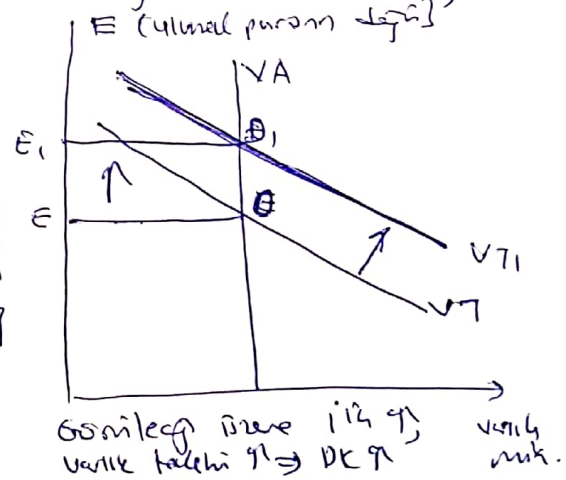 E (ulusal paranın değeri)
VA
E₁
B₁
E
B
VT₁
VT
Görüleceği üzere i'ih ↑,
varlık talebi ↑ ⇒ DK ↑
varlık
mik.